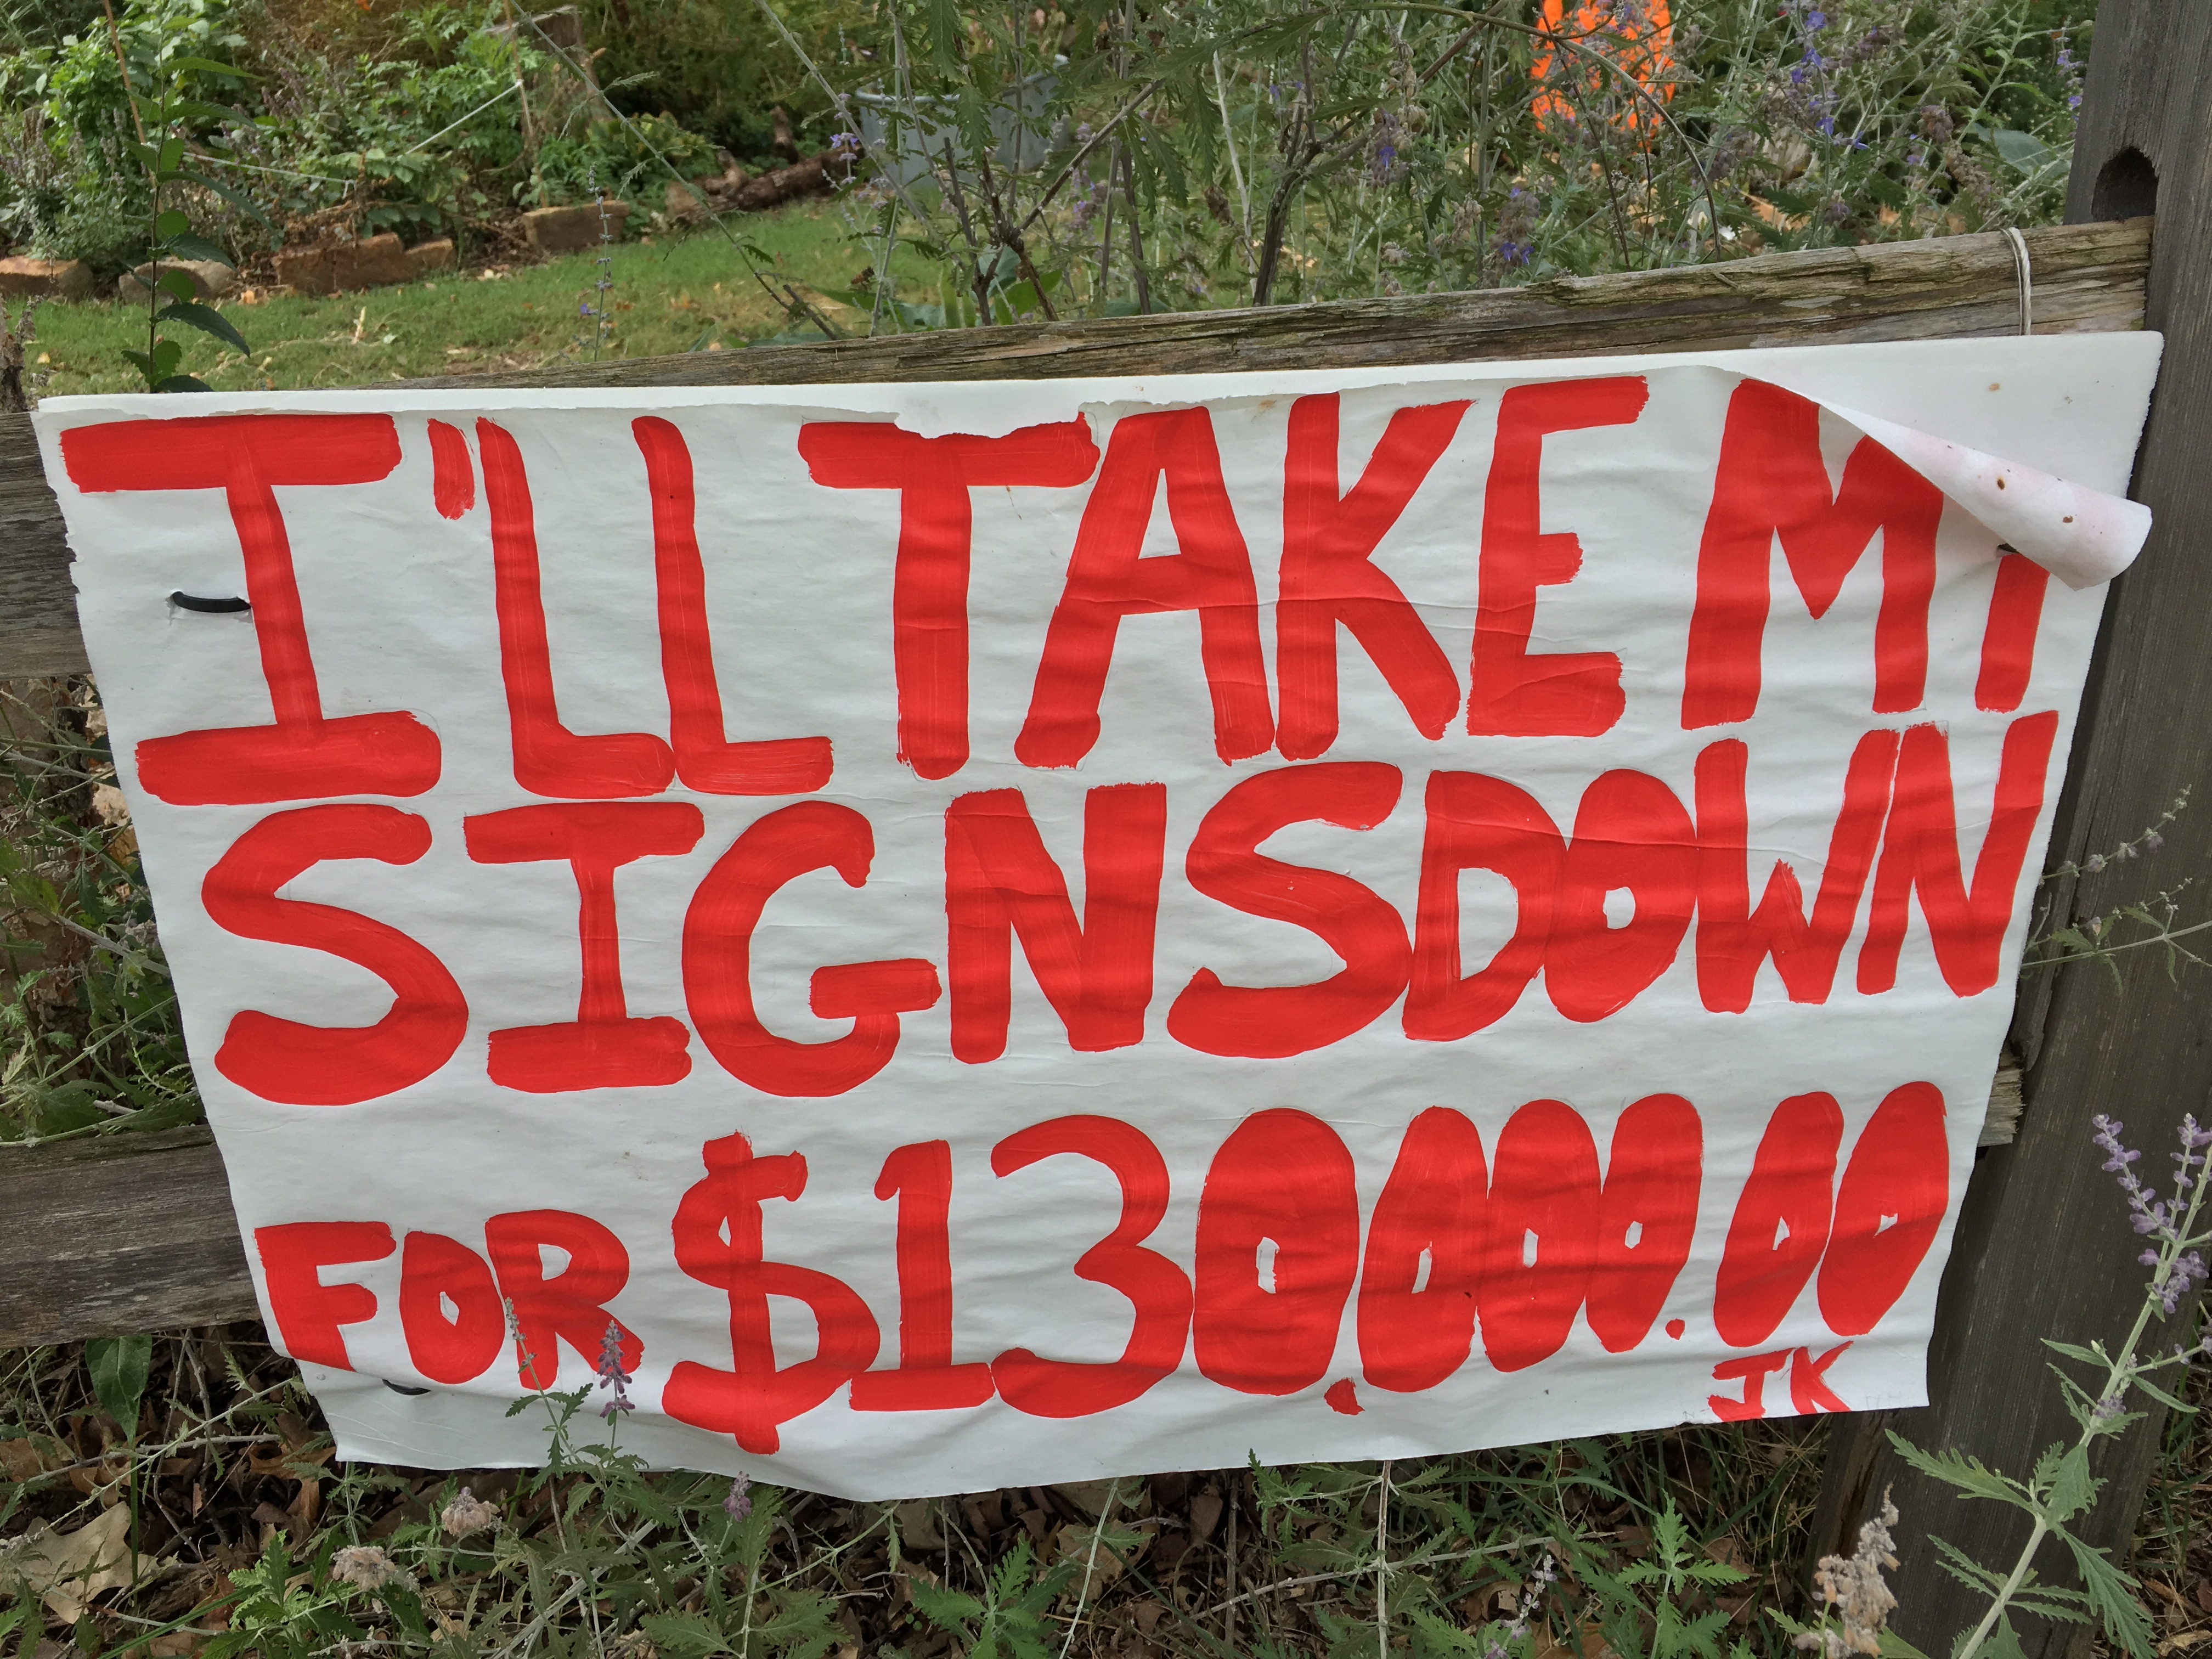 I'LL TAKE MY
SIGNS DOWN
FOR $130,000.00
JK